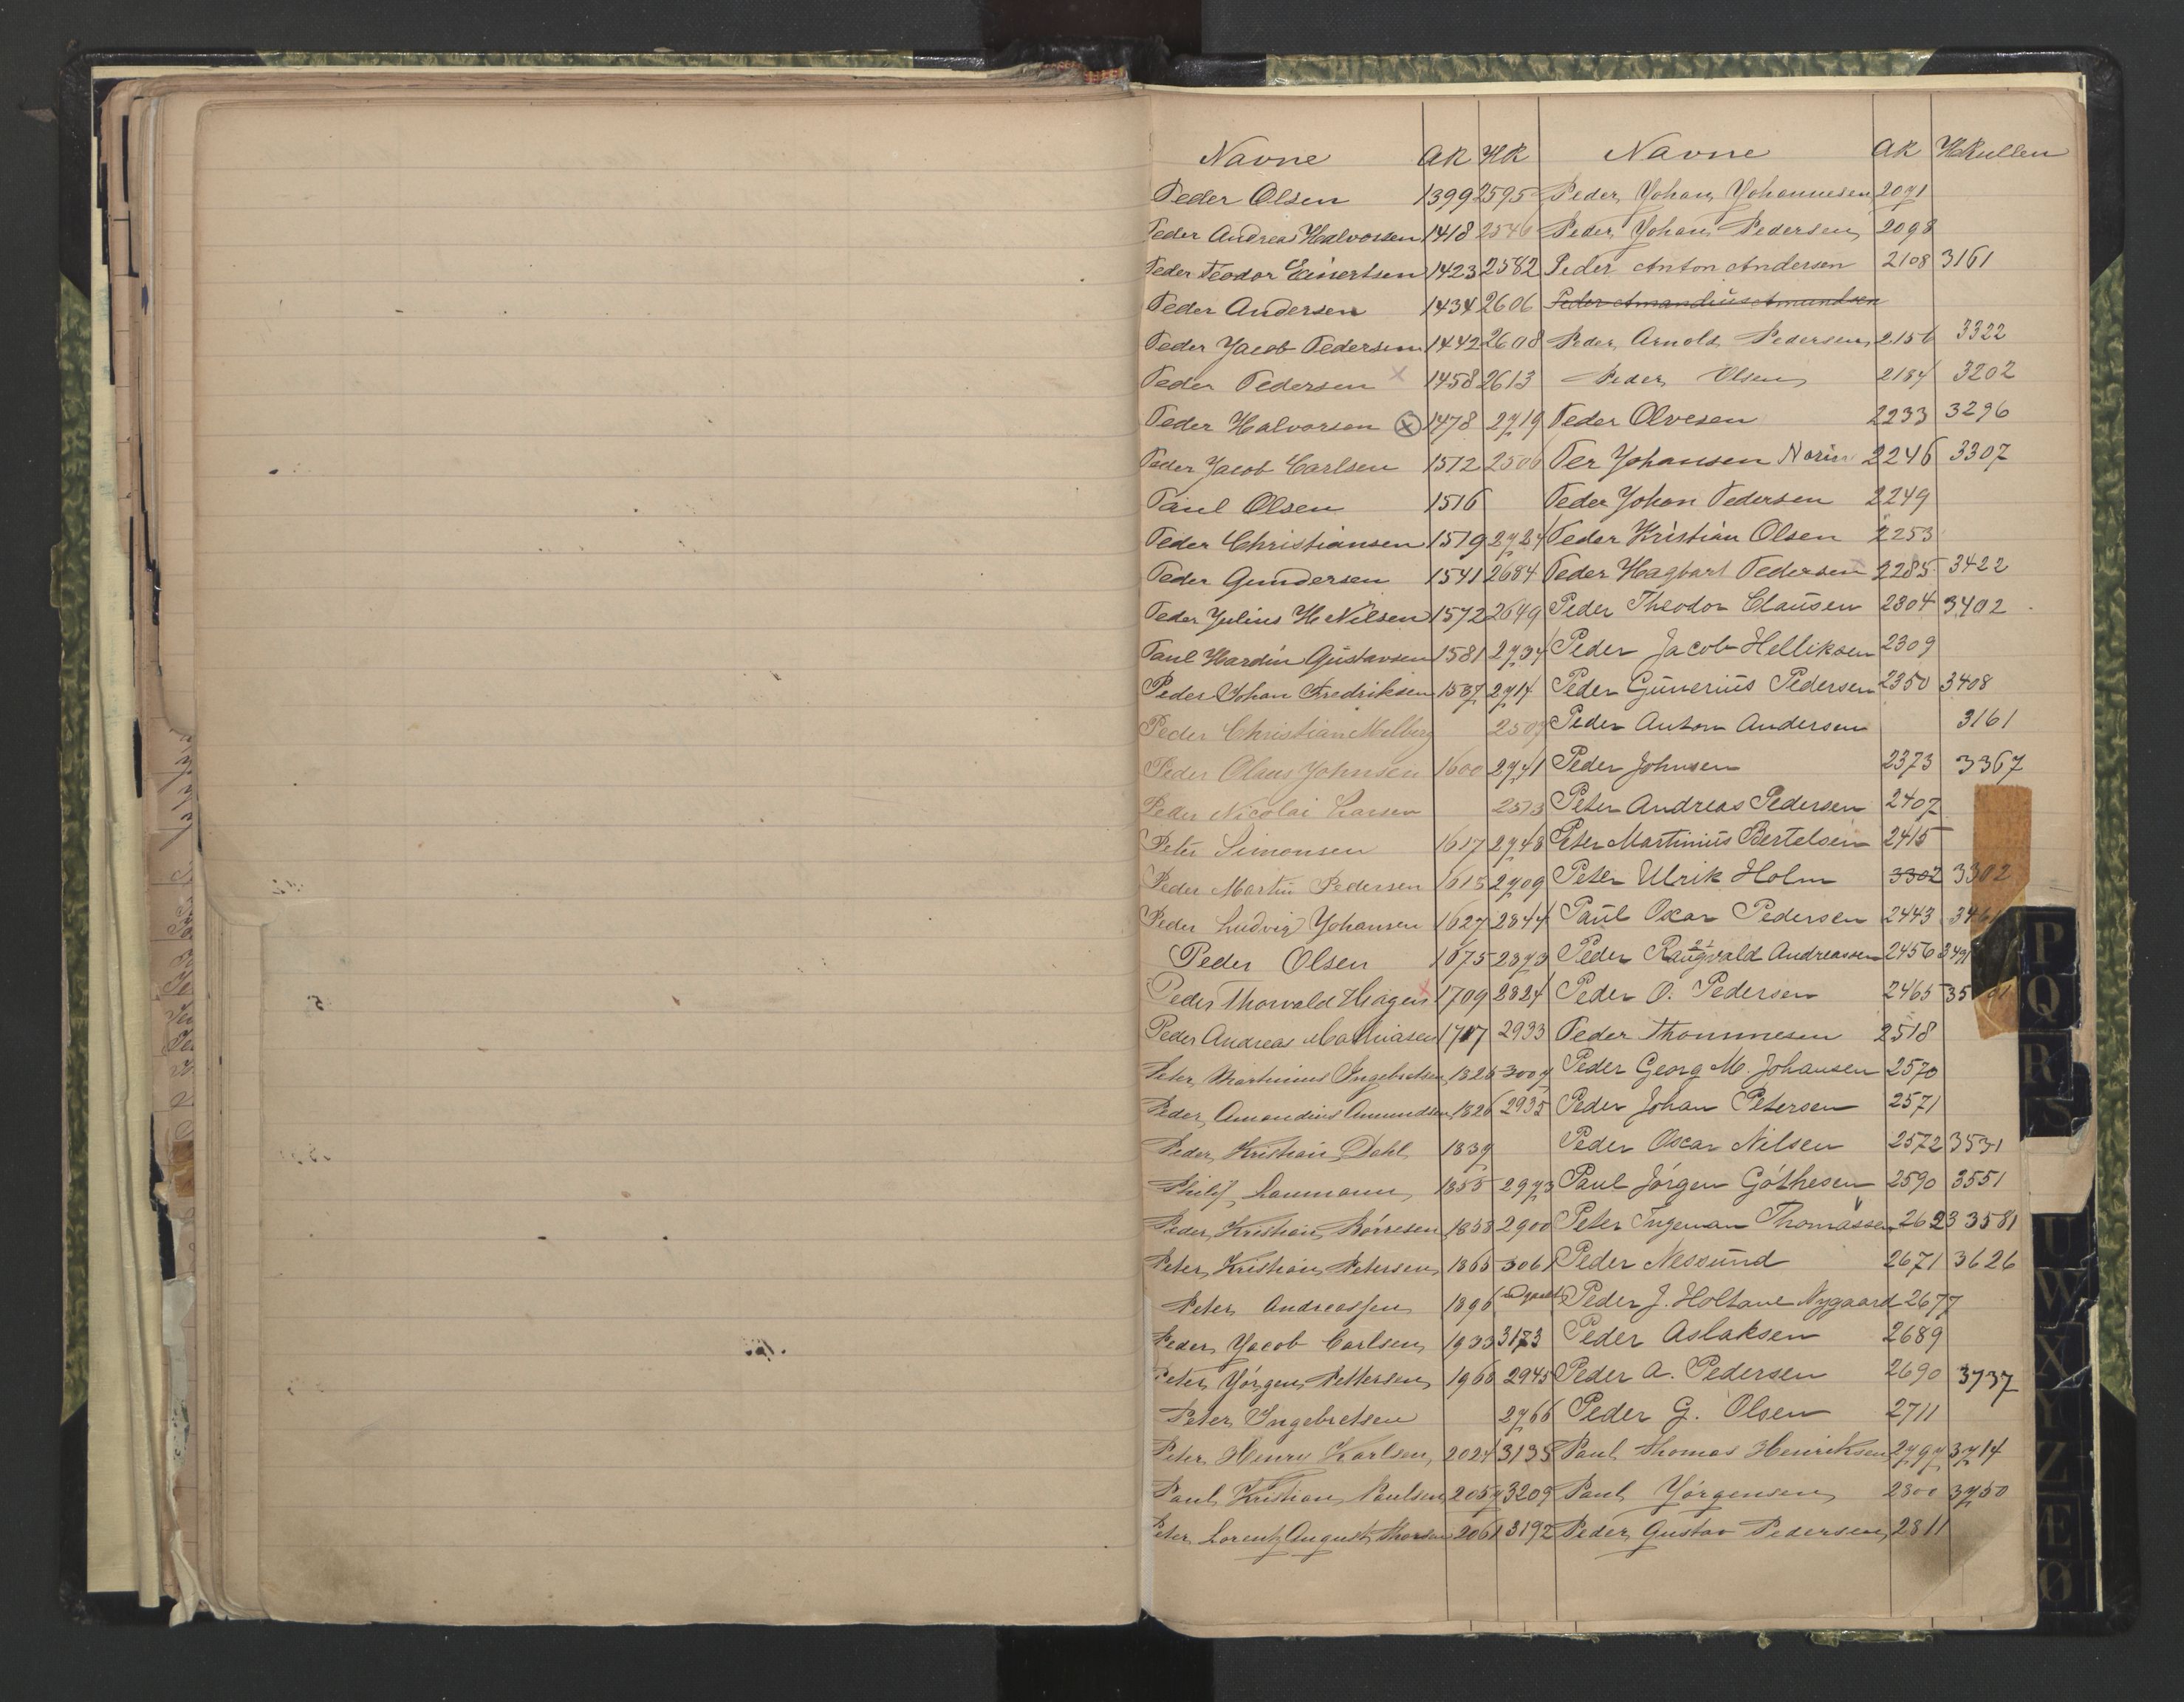 Navne AR HR Navne AR HRullen
Peder Olsen 1399 2595 Peder Johan Johannesen 2071
Peder Andreas Halvorsen 1418 2546 Peder Johan Pedersen 2098
Peder Teodor Einertsen 1423 2582 Peder Anton Andersen 2108 3161
Peder Andersen 1434 2606 Peder Amandius Amundsen
Peder Jacob Pedersen 1442 2608 Peder Arnold Pedersen 2156 3322
Peder Pedersen x 1458 2613 Peder Olsen 2184 3202
Peder Halvorsen x 1478 2719 Peder Olvesen 2233 3296
Peder Jacob Carlsen 1512 2506 Per Johansen 2246 3307
Paul Olsen 1516 Peder Johan Pedersen 2249
Peder Christiansen 1519 2724 Peder Kristian Olsen 2253
Peder Gundersen 1541 2684 Peder Hagbart Pedersen 2285 3422
Peder Julius H Nilsen 1572 2649 Peder Theodor Clausen 2304 3402
Paul Hardin Gustavsen 1581 2734 Peder Jacob Helliksen 2309
Peder Johan Fredriksen 1587 2714 Peder Gunerius Pedersen 2350 3408
Peder Christian Melberg Peder Anton Andersen 3161
Peder Olaus Johnsen 1600 2741 Peder Johnsen 2373 3367
Peder Nicolai Larsen 2573 Peter Andreas Pedersen 2407
Peter Simonsen 1617 2748 Peter Martinius Bertelsen 2415
Peder Martin Pedersen 1615 2709 Peter Ulrik Holm 3302 3302
Peder Ludvig Johansen 1627 2844 Paul Oscar Pedersen 2443
Peder Olsen 1675 2873 Peder Raugvald Andreassen 2456
Peder Thorvald Hagen x 1709 2824 Peder O. Pedersen 2465
Peder Andreas Mathiasen 1717 2933 Peder Thommesen 2518
Peter Martinius Ingebretsen 1826 3007 Peder Georg M. Johansen 2570
Peder Amandius Amundsen 1826 2935 Peder Johan Petersen 2571
Peder Kristian Dahl 1839 Peder Oscar Nilsen 2572 3531
Philip Laumann 1855 2973 Paul Jörgen Göthesen 2590 3551
Peder Kristian Börresen 1858 2900 Peter Ingeman Thomassen 2623 3581
Peter Kristian Petersen 1865 3061 Peder Nessund 2671 3626
Peter Andreassen 1896 Peder J. Holtane Nygaard 2677
Peder Jacob Carlsen 1933 3173 Peder Aslaksen 2689
Peter Jörgen Pettersen 1968 2945 Peder A. Pedersen 2690 3737
Peter Ingebretsen 2766 Peder G. Olsen 2711
Peter Henry Karlsen 2024 3135 Paul Thomas Henriksen 2797 3714
Paul Kristian Paulsen 2057 3209 Paul Jörgensen 2800 3750
Peter Lorentz August Thorsen 2061 3192 Peder Gustav Pedersen 2811
P
Q
R
S
U
W
X
Y
Z
Æ
Ø